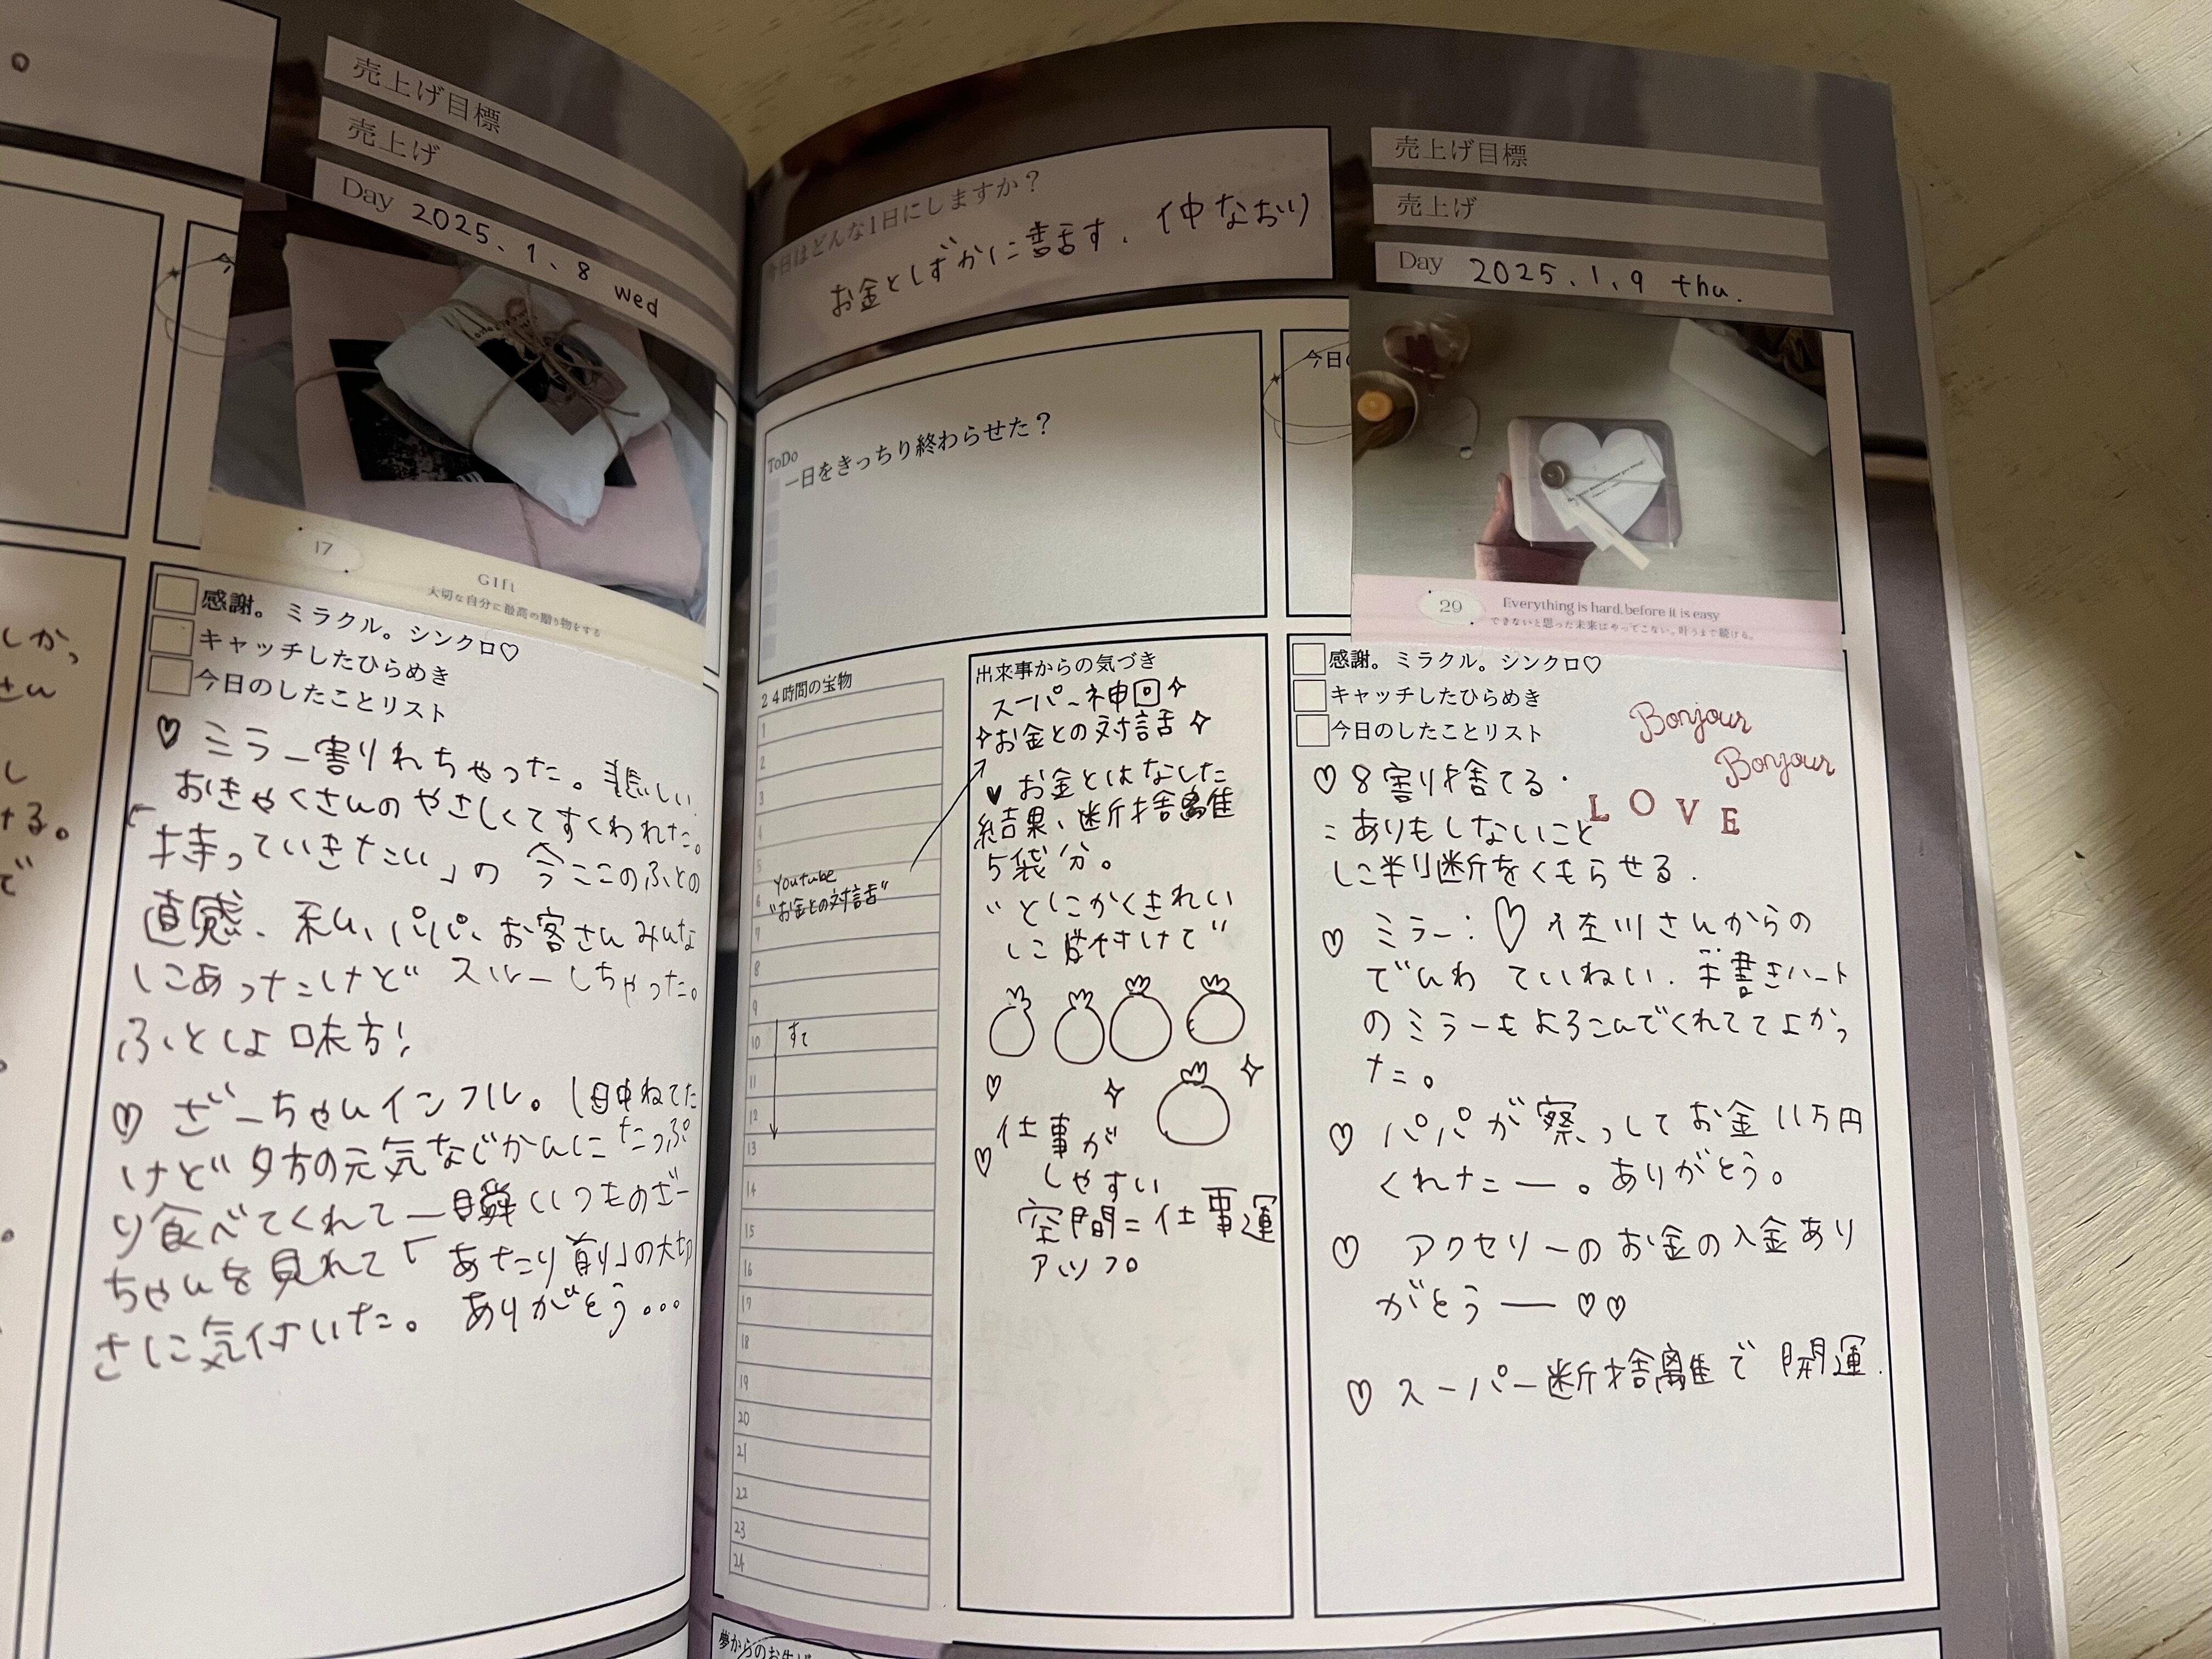 売上げ目標
売上げ
Day 2025.1.8 wed
17
Gift
大切な自分に最高の贈り物をする
感謝。ミラクル。シンクロ♡
キャッチしたひらめき
今日のしたことリスト
♡ ミラー割りれちゃった。悲しい
おきゃくさんのやさしくてすくわれた。
「持っていきたい」の 今ここのふとの
直感、私、パパ、お客さんみんな
にあったけど スルーしちゃった。
ふとは味方!
♡ ざーちゃんインフル。1日中ねてた
けど夕方の元気なじかんに たっぷ
り食べてくれて一瞬いつものざー
ちゃんを見れて「あたり前」の大切
さに気付いた。ありがとう...
今日はどんな1日にしますか?
お金としずかに話す、仲なおり
売上げ目標
売上げ
Day 2025.1.9 thu.
ToDo
一日をきっちり終わらせた?
29
Everything is hard, before it is easy
できないと思った未来はやってこない。叶うまで続ける。
24時間の宝物
1
2
3
4
5
youtube
6
"お金との対話"
7
8
9
10 すて
11
12
13
14
15
16
17
18
19
20
21
22
23
24
出来事からの気づき
スーパー神回✧
✧お金との対話✧
♥ お金とはなした
結果、断捨離
5袋分。
"とにかくきれい
に片付けて"
♡
仕事が
♡ しやすい
空間=仕事運
アップ
感謝。ミラクル。シンクロ♡
キャッチしたひらめき
今日のしたことリスト
Bonjour
Bonjour
LOVE
♡ 8割り捨てる・
=ありもしないこと
に判断をくもらせる.
♡ ミラー:♡ 佐川さんからの
でんわ ていねい. 手書きハート
のミラーもよろこんでくれててよかっ
た。
♡ パパが察っしてお金11万円
くれたー。ありがとう。
♡ アクセリーのお金の入金あり
がとうー♡♡
♡ スーパー断捨離で 開運.